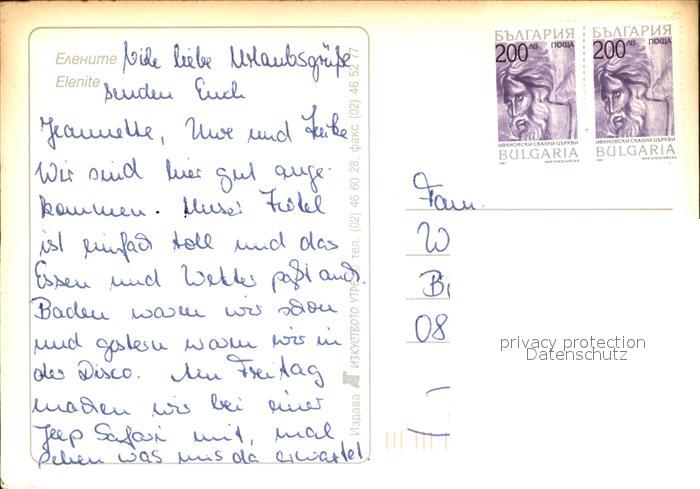 Елените
Elenite
Viele liebe Urlaubsgrüße
senden Euch
Jeannette, Uwe und Heike
Wir sind hier gut ange-
kommen. Unser Hotel
ist einfach toll und das
Essen und Wetter paßt auch.
Baden waren wir schon
und gestern waren wir in
der Disco. Am Freitag
machen wir bei einer
Jeep Safari mit, mal
sehen was uns da erwartet.
Издава ИЗКУСТВОТО УТРЕ тел. (02) 46 60 28, факс (02) 46 52 77
БЪЛГАРИЯ
200 ЛВ ПОЩА
ИВАНОВСКИ СКАЛНИ ЦЪРКВИ
BULGARIA
1997
БЪЛГАРИЯ
200 ЛВ ПОЩА
ИВАНОВСКИ СКАЛНИ ЦЪРКВИ
BULGARIA
1997
Fam.
W
B
08
privacy protection
Datenschutz